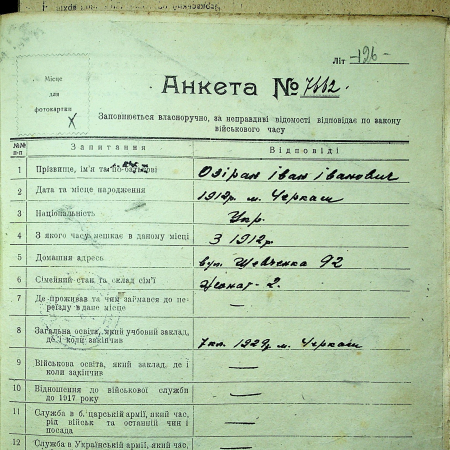 Літ -126-
Місце
для
фотокартки
Анкета № 7662.
Заповнюється власноручно, за неправдиві відомості відповідає по закону
військового часу
№№ п-п Запитання Відповіді
1 Прізвище, ім'я та по-батькові Озіран Іван Іванович
2 Дата та місце народження 1912р. м. Черкаси
3 Національність Укр.
4 З якого часу мешкає в даному місці З 1912р
5 Домашня адреса вул. Шевченка 92
6 Сімейний стан та склад сім'ї Жонат - 2.
7 Де проживав та чим займався до пе-
реїзду в дане місце —
8 Загальна освіта, який учбовий заклад,
де і коли закінчив 7кл. 1929р м. Черкаси
9 Військова освіта, який заклад, де і
коли закінчив —
10 Відношення до військової служби
до 1917 року —
11 Служба в б. царській армії, який час,
рід військ та останній чин і
посада —
12 Служба в Українській армії, який час,